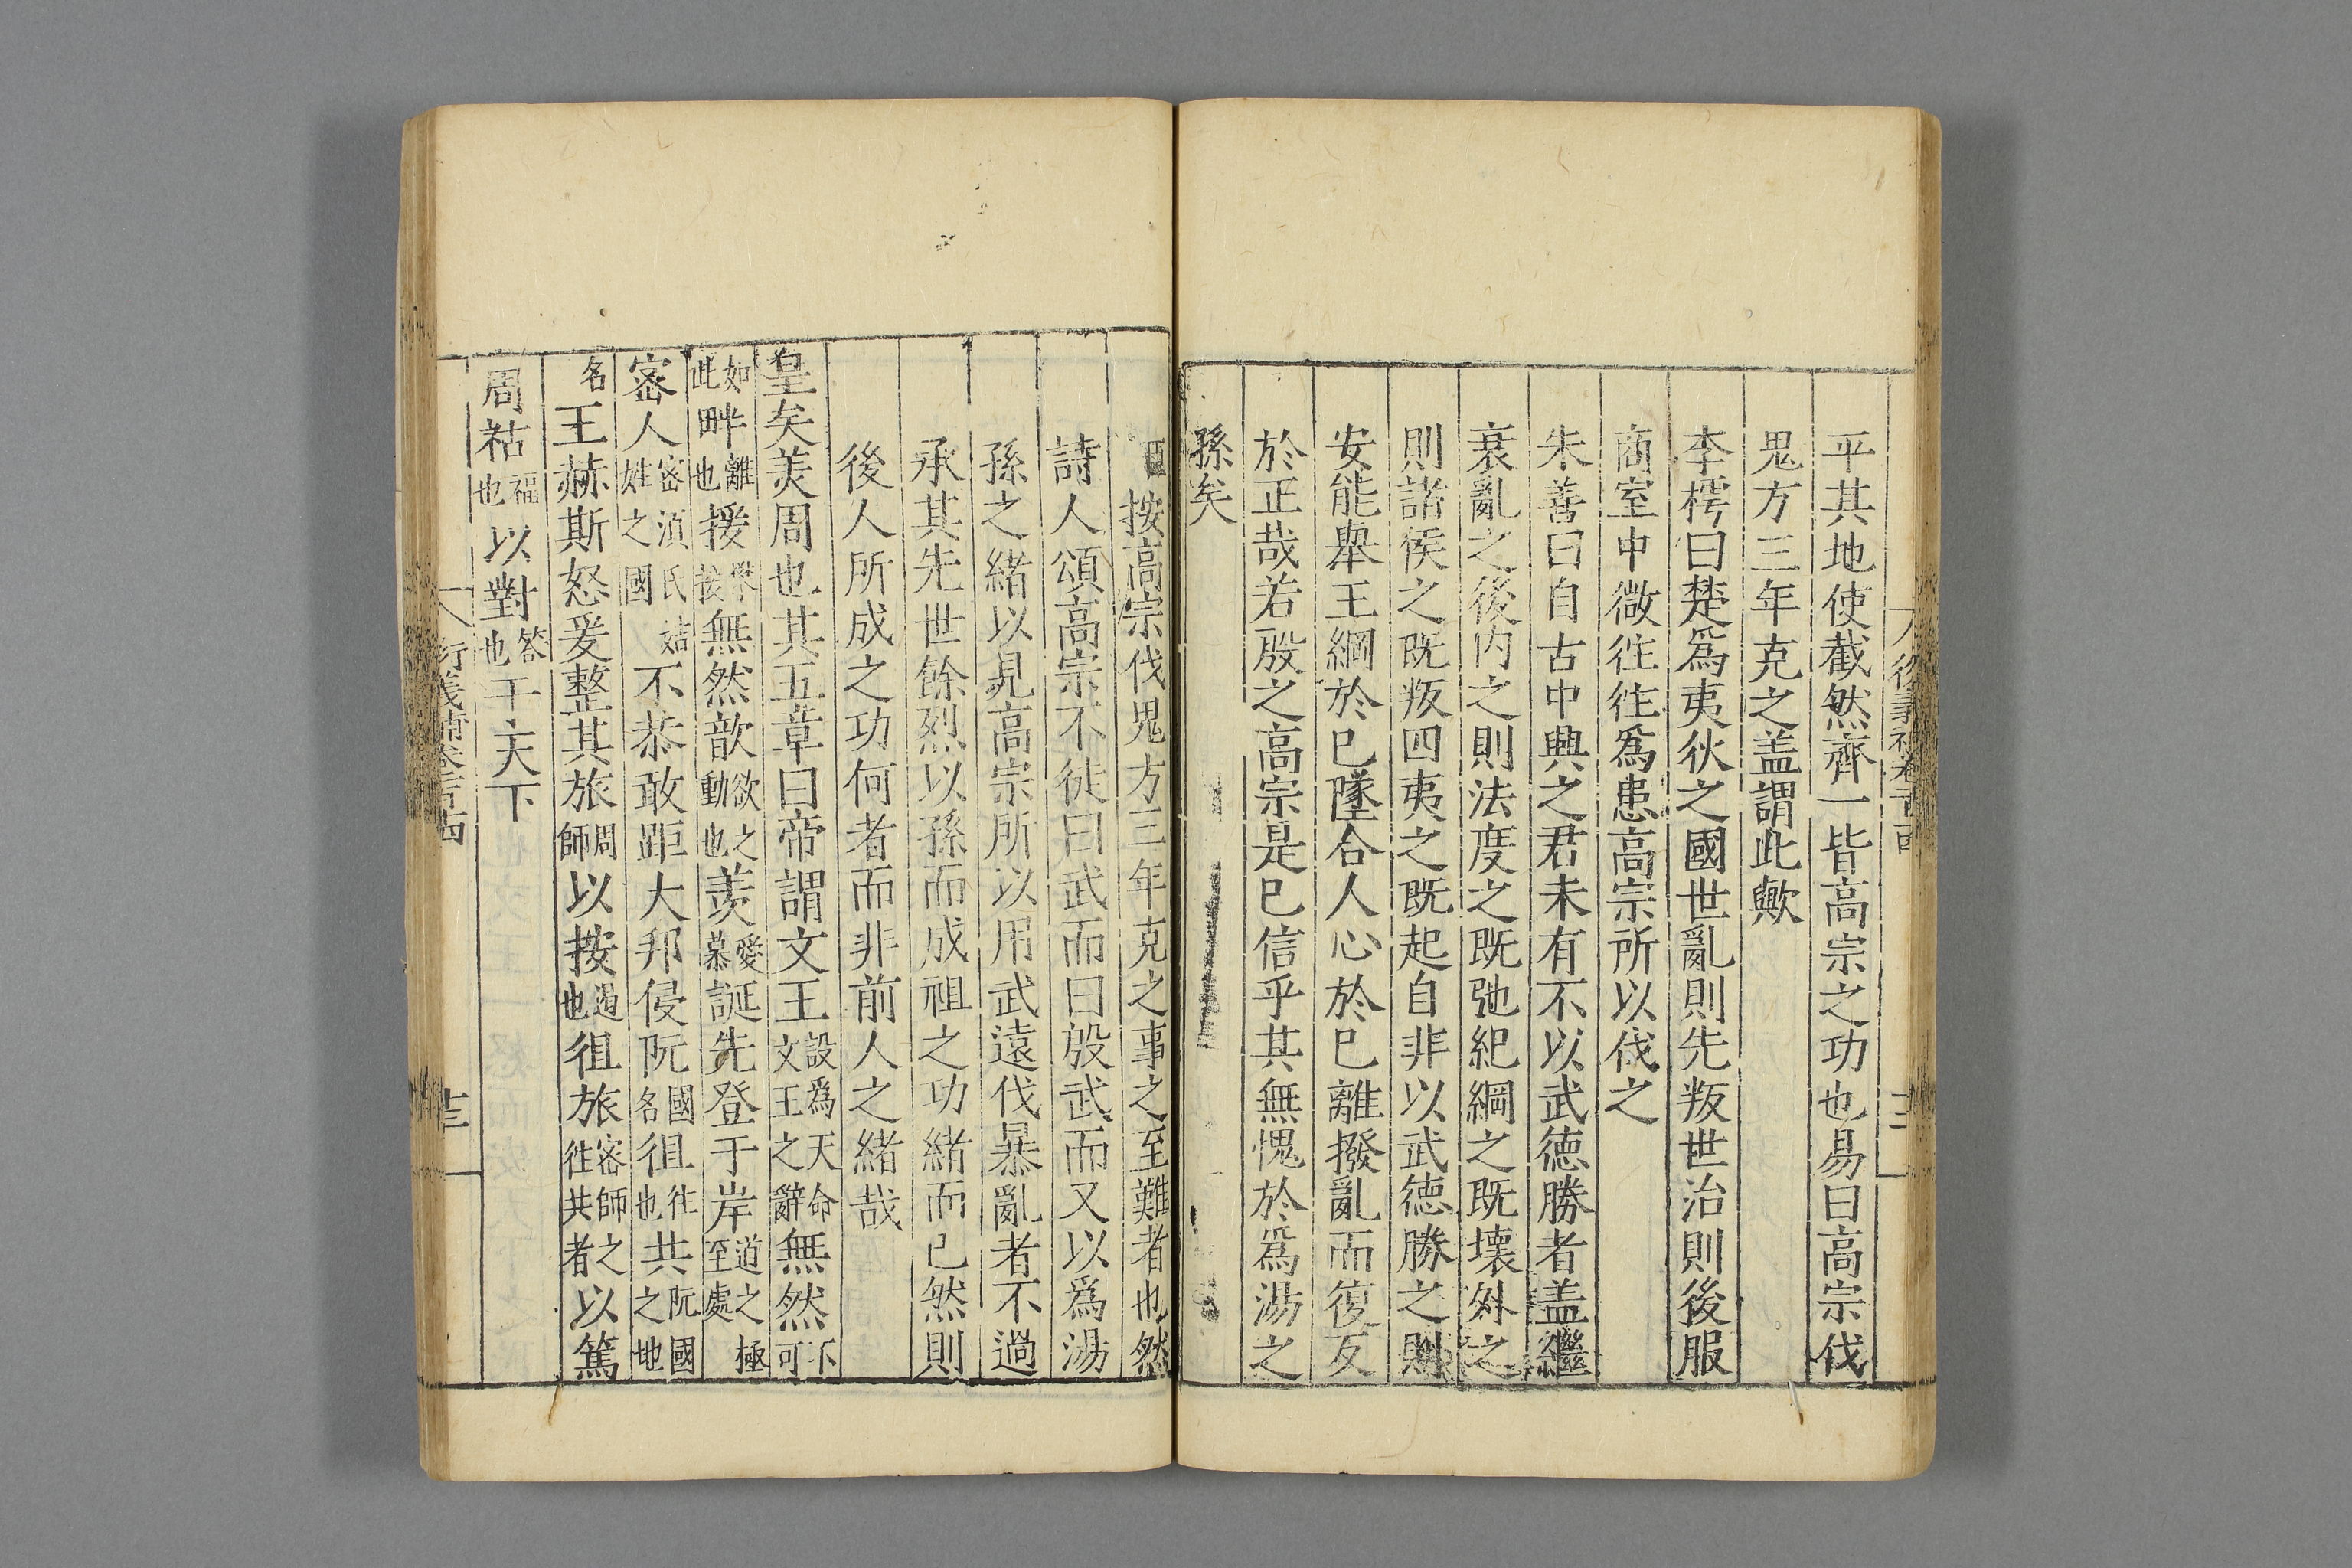 平其地使截然齊一皆高宗之功也易曰高宗伐
鬼方三年克之盖謂此歟
李樗曰楚爲夷狄之國世亂則先叛世治則後服
商室中微徃徃爲患高宗所以伐之
朱善曰自古中興之君未有不以武德勝者盖繼
衰亂之後内之則法度之既弛紀綱之既壞外之
則諸侯之既叛四夷之既起自非以武德勝之則
安能舉王綱於已墜合人心於已離撥亂而復反
於正哉若殷之高宗是已信乎其無愧於爲湯之
孫矣
臣按高宗伐鬼方三年克之事之至難者也然
詩人頌高宗不徒曰武而曰殷武而又以爲湯
孫之緒以見高宗所以用武遠伐暴亂者不過
承其先世餘烈以孫而成祖之功緒而已然則
後人所成之功何者而非前人之緒哉
皇矣美周也其五章曰帝謂文王設爲天命文王之辭無然不可
如此畔離也援攀援無然歆欲之動也羨愛慕誕先登于岸道之極至處
密人密湏氏姞姓之國不恭敢距大邦侵阮國名徂徃也共阮國之地
名王赫斯怒爰整其旅周師以按遏也徂旅密師之徃共者以篤
周祜福也以對答也于天下
衍義補卷百四
十三